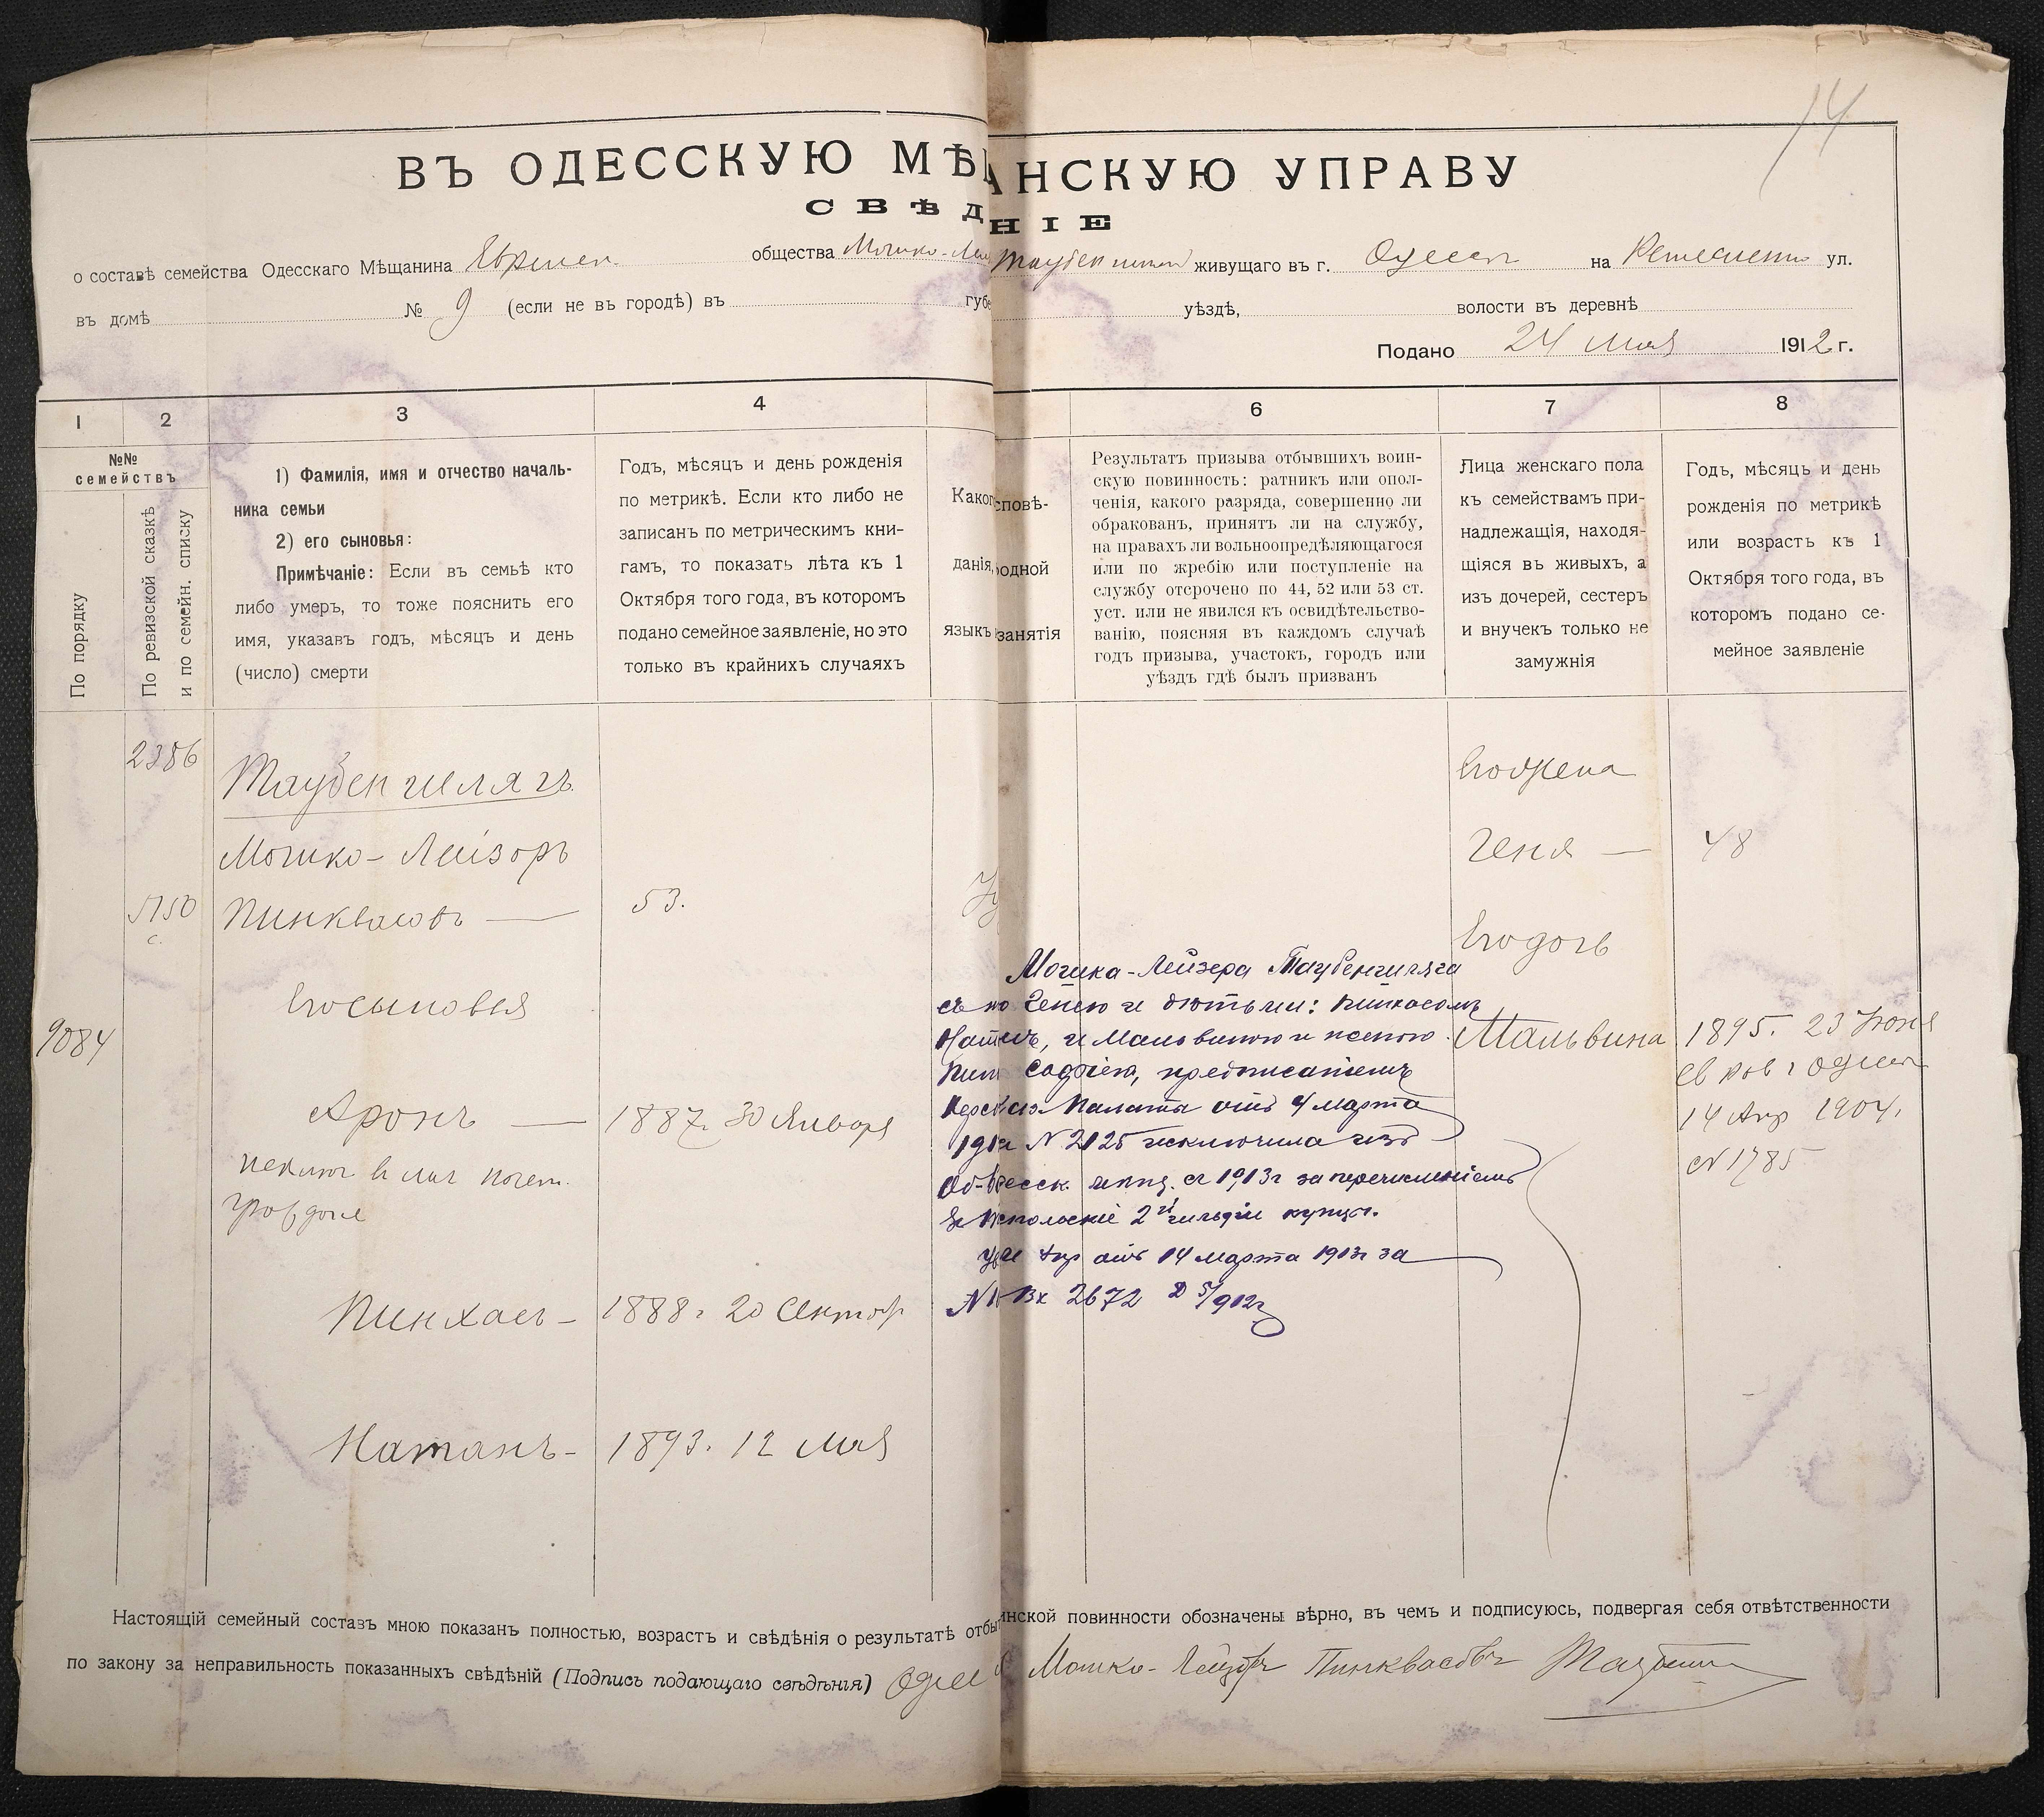 14
ВЪ ОДЕССКУЮ МѢЩАНСКУЮ УПРАВУ
СВѢДНІЕ
о составѣ семейства Одесскаго Мѣщанина общества Мошко- живущаго въ г. Одессѣ на ул.
въ домѣ № 9 (если не въ городѣ) въ губе уѣздѣ, волости въ деревнѣ
Подано 24 мая 1912 г.
1 2 3 4 6 7 8
№№ семействъ
По порядку
По ревизской сказкѣ
и по семейн. списку
1) Фамилія, имя и отчество началь-
ника семьи
2) его сыновья:
Примѣчаніе: Если въ семьѣ кто
либо умеръ, то тоже пояснить его
имя, указавъ годъ, мѣсяцъ и день
(число) смерти
Годъ, мѣсяцъ и день рожденія
по метрикѣ. Если кто либо не
записанъ по метрическимъ кни-
гамъ, то показать лѣта къ 1
Октября того года, въ которомъ
подано семейное заявленіе, но это
только въ крайнихъ случаяхъ
Каког сповѣ-
данія, одной
языкъ занятія
Результатъ призыва отбывшихъ воин-
скую повинность: ратникъ или опол-
ченія, какого разряда, совершенно ли
обракованъ, принятъ ли на службу,
на правахъ ли вольноопредѣляющагося
или по жребію или поступленіе на
службу отсрочено по 44, 52 или 53 ст.
уст. или не явился къ освидѣтельство-
ванію, поясняя въ каждомъ случаѣ
годъ призыва, участокъ, городъ или
уѣздъ гдѣ былъ призванъ
Лица женскаго пола
къ семействамъ при-
надлежащія, находя-
щіяся въ живыхъ, а
изъ дочерей, сестеръ
и внучекъ только не
замужнія
Годъ, мѣсяцъ и день
рожденія по метрикѣ
или возрастъ къ 1
Октября того года, въ
которомъ подано се-
мейное заявленіе
2386
Таубеншлягъ
Его жена
Мошко-Лейзоръ
Геня — 48
5150
с.
Пинквасовъ — 53.
Его дочь
Его сыновья
9084
Мальвина 1895. 23 Іюня
14 Апр 1904.
№ 1785
Аронъ — 1887 г. 30 Января
Пинхасъ - 1888 г. 20 Сентяб
Натанъ - 1893. 12 мая
Мошка-Лейзера Таубеншляга
Генею и дѣтьми: Пинхасомъ
и Мальвиною и женою
Софіею, предписаніемъ
Палаты отъ 4 марта
№ 2125 исключила изъ
съ 1913 г за перечисленіемъ
2й гильдіи купцы.
отъ 14 марта 1913 г за
Вх 2672 Д 5/912 г
Настоящій семейный составъ мною показанъ полностью, возрастъ и свѣдѣнія о результатѣ отбы инской повинности обозначены вѣрно, въ чемъ и подписуюсь, подвергая себя отвѣтственности
по закону за неправильность показанныхъ свѣдѣній (Подпись подающаго свѣдѣнія) Мошко-Лейзоръ Пинквасовъ